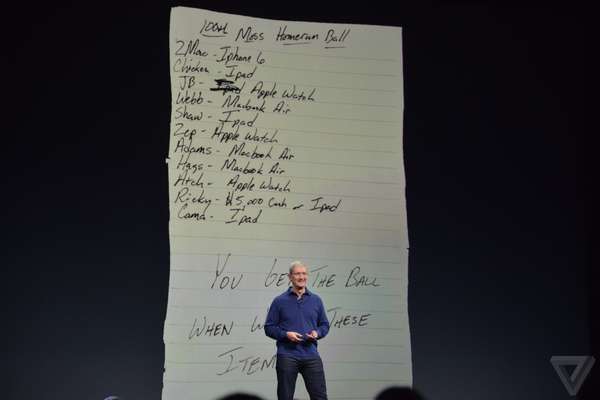 100th Moss Homerun Ball
2Mac - Iphone 6
Chicken - Ipad
JB - Ipad Apple Watch
Webb - Macbook Air
Shaw - Ipad
Zep - Apple Watch
Adams - Macbook Air
Hags - Macbook Air
Htch - Apple Watch
Ricky - $5,000 Cash - Ipad
Cama - Ipad
You Get The Ball
When W These
Item